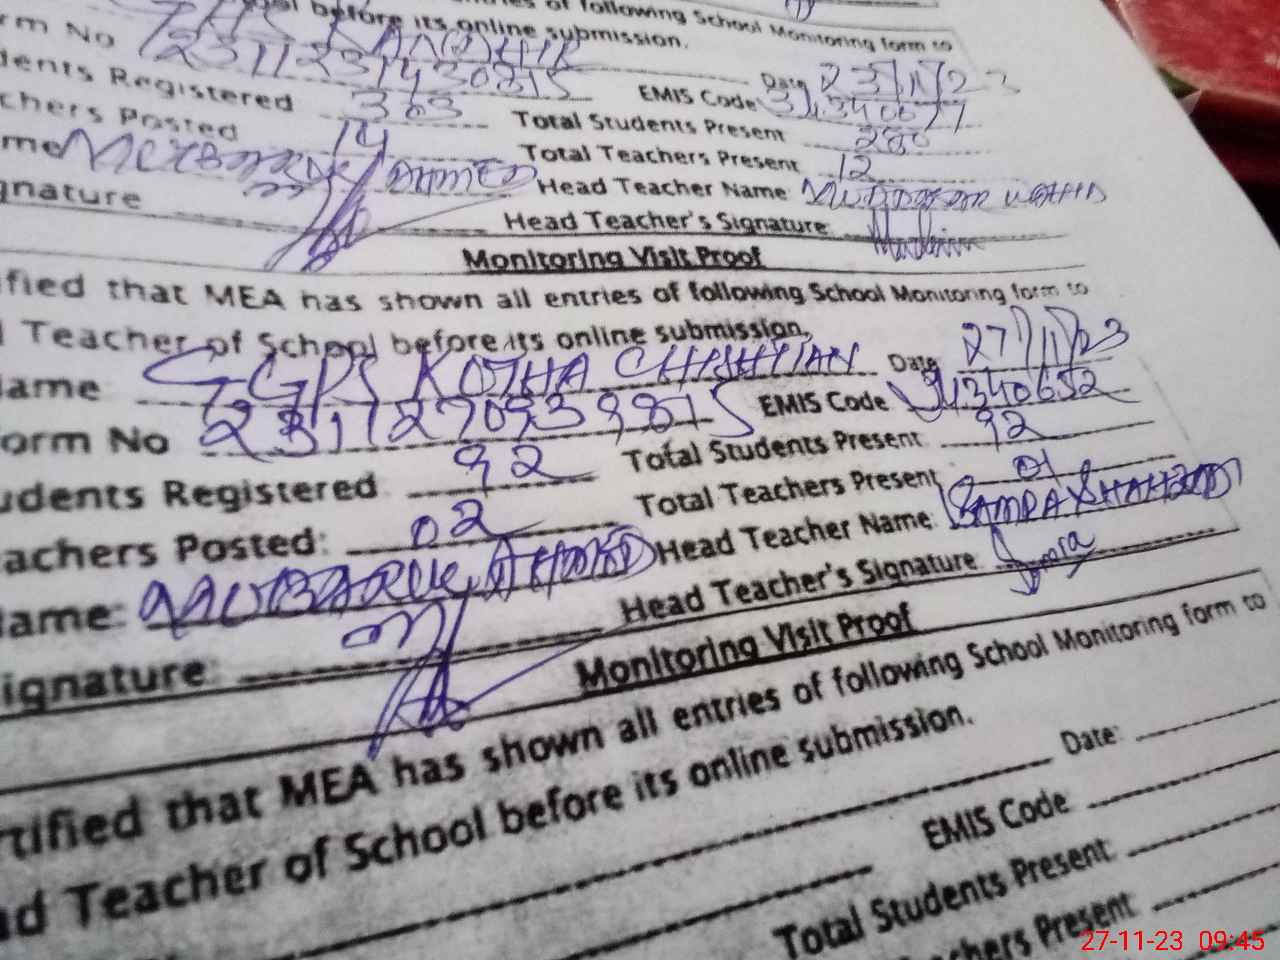 before its online submission. of following School Monitoring form to
rm No 231123143031S Date 23/11/23
dents Registered 363 EMIS Code 31340677
chers Posted 14 Total Students Present 280
me AHMED Total Teachers Present 12
gnature Head Teacher Name
Head Teacher's Signature
Monitoring Visit Proof
fied that MEA has shown all entries of following School Monitoring form to
Teacher of School before its online submission.
ame GGPS KOTHA CHISHTIAN Date 27/11/23
orm No EMIS Code 31340652
udents Registered 92 Total Students Present 92
achers Posted: 02 Total Teachers Present 01
ame: MUBARUK AHMED Head Teacher Name: SAMRA SHAHZADI
ignature: Head Teacher's Signature
Monitoring Visit Proof
rtified that MEA has shown all entries of following School Monitoring form to
ad Teacher of School before its online submission.
Date:
EMIS Code
Total Students Present
chers Present
27-11-23 09:45